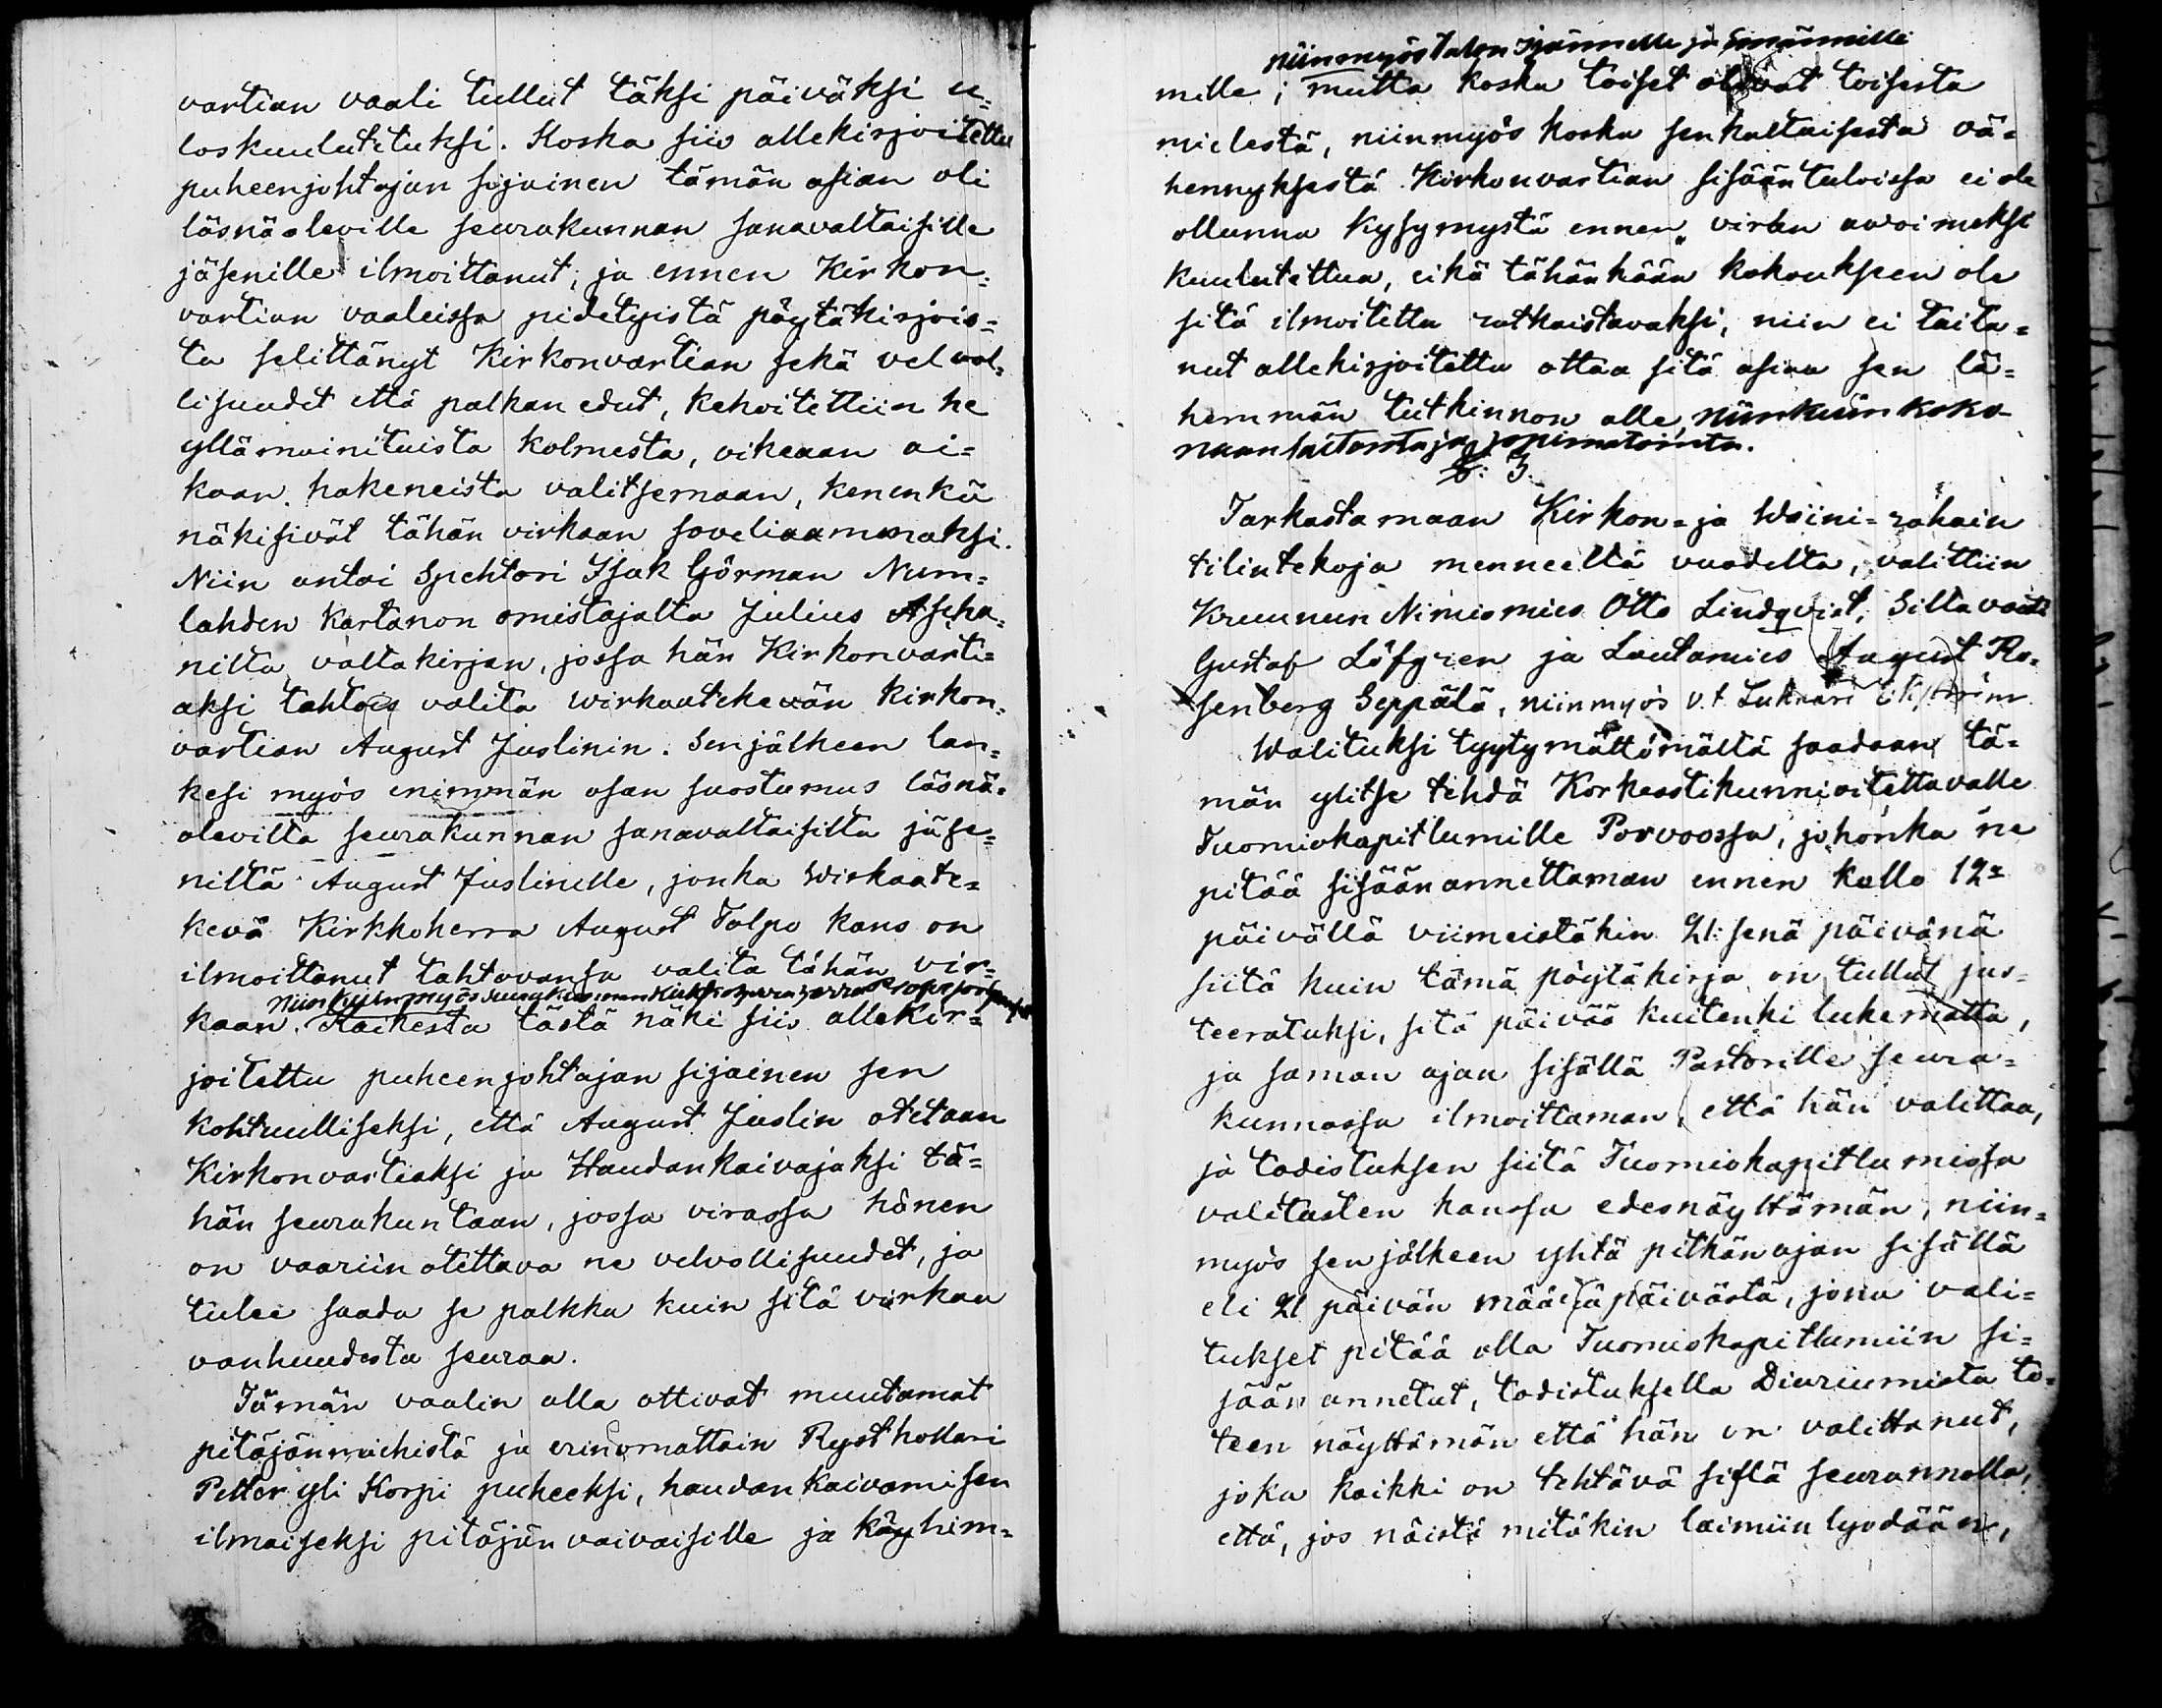 vartian vaali tullut täksi päiväksi u=
loskuulutetuksi. Koska siis allekirjoitettu
puheenjohtajan sijainen tämän asian oli
läsnäoleville seurakunnan sanavaltaisille
jäsenille ilmoittanut, ja ennen Kirkon=
vartian vaaleissa pidetyistä pöytäkirjois=
ta selittänyt Kirkonvartian sekä velvol=
lisuudet että palkan edut, kehoitettiin he
yllämainituista kolmesta, oikeaan ai=
kaan hakeneista valitsemaan, kenenkä
näkisivät tähän virkaan soveliaammaksi.
Niin antoi Spehtori Isak Görman Num=
lahden Kartanon omistajalta Julius Ascha=
nilta valtakirjan, jossa hän Kirkonvarti=
aksi tahtois valita wirkaatekevän Kirkon=
vartian August Juslinin. Senjälkeen lan=
kesi myös enimmän osan suostumus läsnä=
olevilta seurakunnan sanavaltaisilta jäse=
niltä August Juslinille, jonka Wirkaate=
kevä Kirkkoherra August Talpo kans on
ilmoittanut tahtovansa valita tähän vir=
niin kuin myös
kaan. Kaikesta tästä näki siis allekir=
joitettu puheenjohtajan sijainen sen
kohtuulliseksi, että August Juslin otetaan
Kirkonvartiaksi ja Haudankaivajaksi tä=
hän seurakuntaan, jossa virassa hänen
on vaariin otettava ne velvollisuudet, ja
tulee saada se palkka kuin sitä virkaa
vanhuudesta seuraa.
Tämän vaalin alla ottivat muutamat
pitäjänmiehistä ja erinomattain Rysthollari
Petter yli Korpi puheeksi, haudan kaivamisen
ilmaiseksi pitäjän vaivaisille ja köyhim=
niinmyös talon Isännille ja Emännille
mille; mutta koska toiset olivat toisesta
mielestä, niinmyös koska senkaltaisesta vä=
hennyksestä Kirkonvartian sisääntuloissa ei ole
ollunna kysymystä ennen virkan avoimeksi
kuulutettua, eikä tähänkään kokoukseen ole
sitä ilmoitettu ratkaistavaksi, niin ei taita=
nut allekirjoitettu ottaa sitä asiaa sen lä=
hemmän tutkinnon alle, niinkuin koko=
naan laitonta ja sopimatointa.
§. 3.
Tarkastamaan Kirkon= ja Wiini=rahain
tilintekoja menneeltä vuodelta, valittiin
Kruunun Nimismies Otto Lindqvist, Siltavouti
Gustaf Löfgren ja Lautamies August Ro=
senberg Seppälä, niinmyös v.t. Lukkari Ekström
Walituksi tyytymättömältä saadaan tä=
män ylitse tehdä Korkeastikunnioitettavalle
Tuomiokapitlumille Porvoossa, johonka ne
pitää sisäänannettaman ennen kello 12
päivällä viimeistäkin 21:senä päivänä
siitä kuin tämä pöytäkirja on tullut jus=
teeratuksi, sitä päivää kuitenki lukematta,
ja saman ajan sisällä Pastorille seura=
kunnassa ilmoittaman, että hän valittaa,
ja todistuksen siitä Tuomiokapitlumissa
valitusten kanssa edesnäyttämän, niin=
myös senjälkeen yhtä pitkän ajan sisällä
eli 21 päivän määräpäivästä, jona vali=
tukset pitää olla Tuomiokapitlumiin si=
sään annetut, todistuksella Diariumista to=
teen näyttämän että hän on valittanut,
joka kaikki on tehtävä sillä seurannolla,
että, jos näistä mitäkin laimiin lyödään,